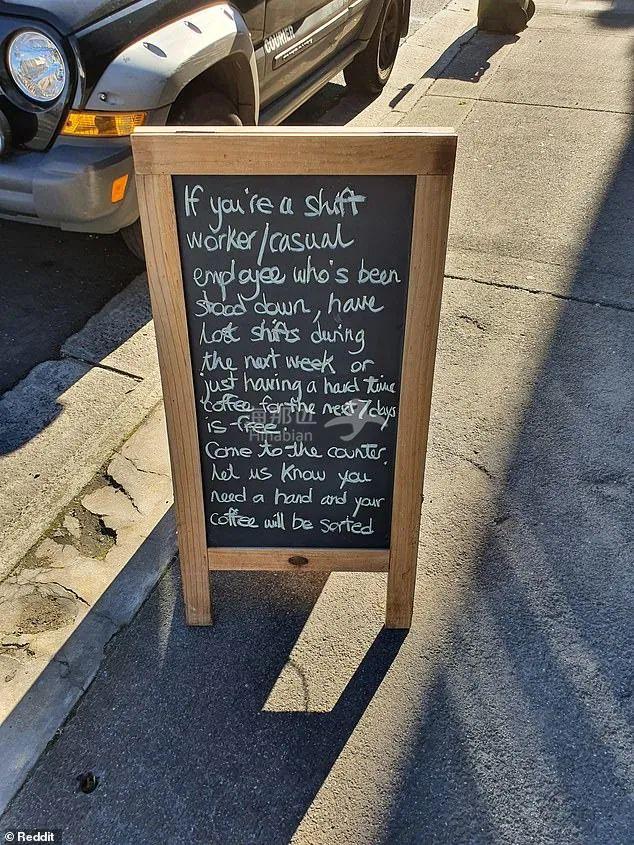 COURIER
If you're a shift
worker/casual
employee who's been
stood down, have
lost shifts during
the next week or
just having a hard time
coffee for the next 7 days
is free.
Come to the counter.
Let us know you
need a hand and your
coffee will be sorted
海那边
Hinabian
© Reddit